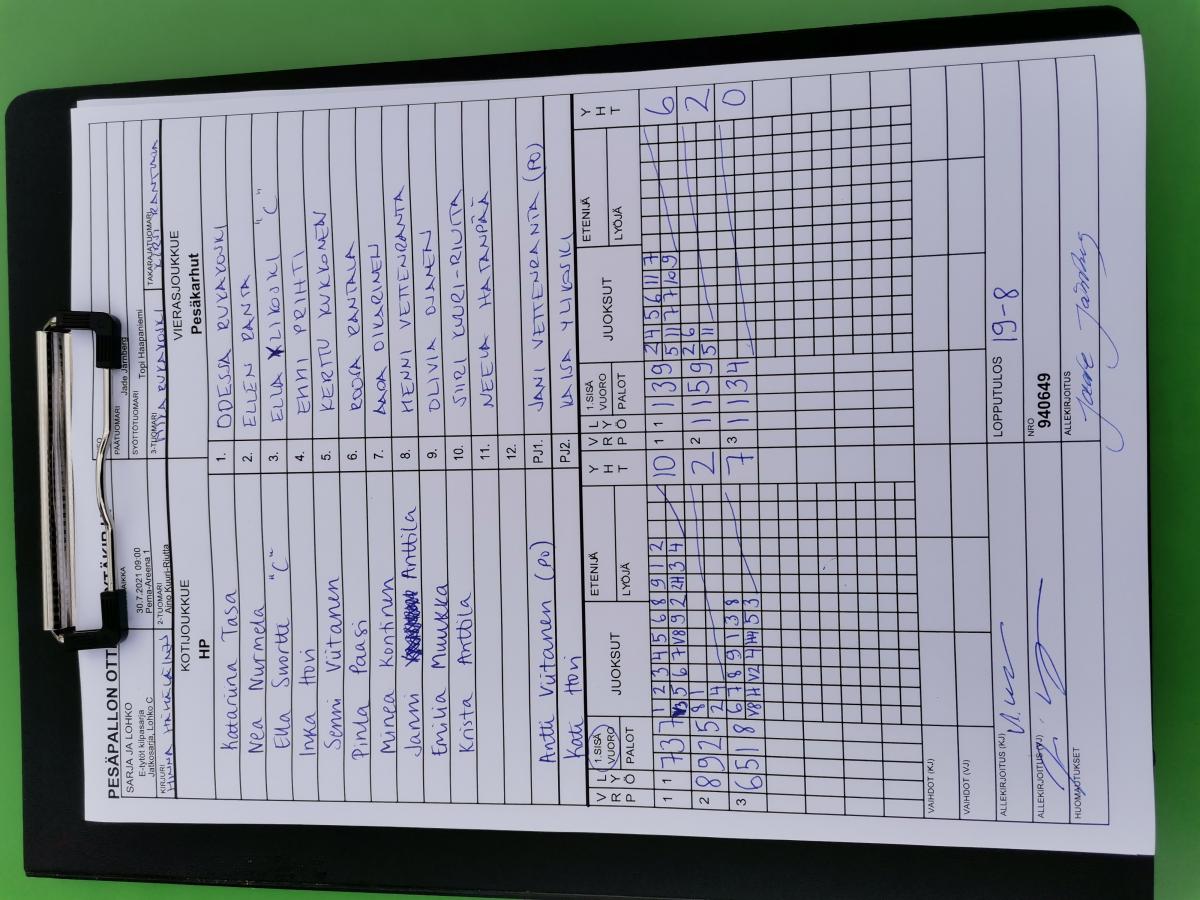 PESÄPALLON OTT
SARJA JA LOHKO
E-tytöt kilpasarja
Jatkosarja, Lohko C
30.7.2021 09:00
Perna-Areena 1
PÄÄTUOMARI
Jade Jarnberg
SYÖTTÖTUOMARI
Topi Haapaniemi
KIRJURI
2-TUOMARI
Aino Kuuri-Riutta
3-TUOMARI
TAKARAJATUOMARI
KOTIJOUKKUE
HP
VIERASJOUKKUE
Pesäkarhut
Katariina Tasa 1. ODESSA RUKAKOSKI
Nea Nurmela 2. ELLEN RANTA
Ella Suvortti "C" 3. ELLA YLIKOSKI "C"
Inka Hovi 4. EMMI PRIHTI
Senni Viitanen 5. KERTTU KUKKONEN
Pinda Paasi 6. ROOSA RANTALA
Minea Kontinen 7. AADA OIKARINEN
Janni Anttila 8. HENNI VETTENRANTA
Emilia Muukka 9. OLIVIA OJANEN
Krista Anttila 10. SIRI KUURI-RIUTTA
11. NEELA HATANPÄÄ
12.
Antti Viitanen (PO) PJ1. JANI VETTENRANTA (PO)
Kati Hovi PJ2. KAISA YLIKOSKI
V R P L Y Ö 1.SISÄ VUORO PALOT JUOKSUT ETENIJÄ LYÖJÄ Y H T V R P L Y Ö 1.SISÄ VUORO PALOT JUOKSUT ETENIJÄ LYÖJÄ Y H T
1 1 7 3 7 1 2 3 4 5 6 8 9 1 2 10 1 1 1 3 9 2 4 5 6 11 7 6
5 6 7 V8 9 2 2H 3 4 5 11 7 7 10 9
2 8 9 2 5 8 1 2 2 1 1 5 9 2 6 2
2 4 5 11
3 6 5 1 8 6 7 8 9 1 3 8 7 3 1 1 3 4 0
V8 H V2 4 H4 5 3
VAIHDOT (KJ)
VAIHDOT (VJ)
ALLEKIRJOITUS (KJ)
LOPPUTULOS 19-8
ALLEKIRJOITUS (VJ)
NRO
940649
HUOMAUTUKSET
ALLEKIRJOITUS